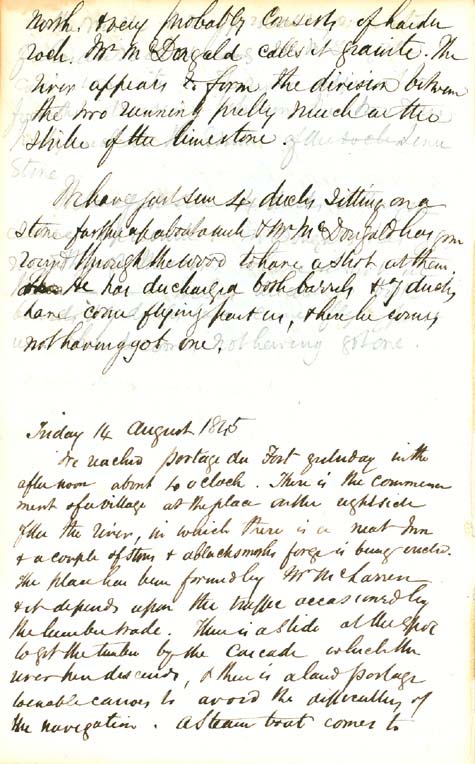 North. & very probably Consists of harder
rock. Mr McDougald calls it granite. The
river appears to form the division between
the two running pretty much in the
strike of the limestone.
We have just seen 4 ducks sitting on a
stone further up about a mile & Mr McDougald has gone
round through the wood to have a shot at them
He has discharged both barrels & 7 ducks
have come flying past us, & here he comes
not having got one.
Friday 14 August 1845
We reached Portage du Fort yesterday in the
afternoon about 4 oclock. There is the commence
ment of a village at the place on the right side
of the River, in which there is a neat Inn
& a couple of Stores & a blacksmiths forge is being erected.
The place has been formed by Mr McLarren
& it depends upon the traffic occasioned by
the lumber trade. There is a Slide at the spot
to get the timber by the Cascade which the
river here descends, & there is a land portage
to enable canoes to avoid the difficulties of
the navigation. A Steam boat comes to